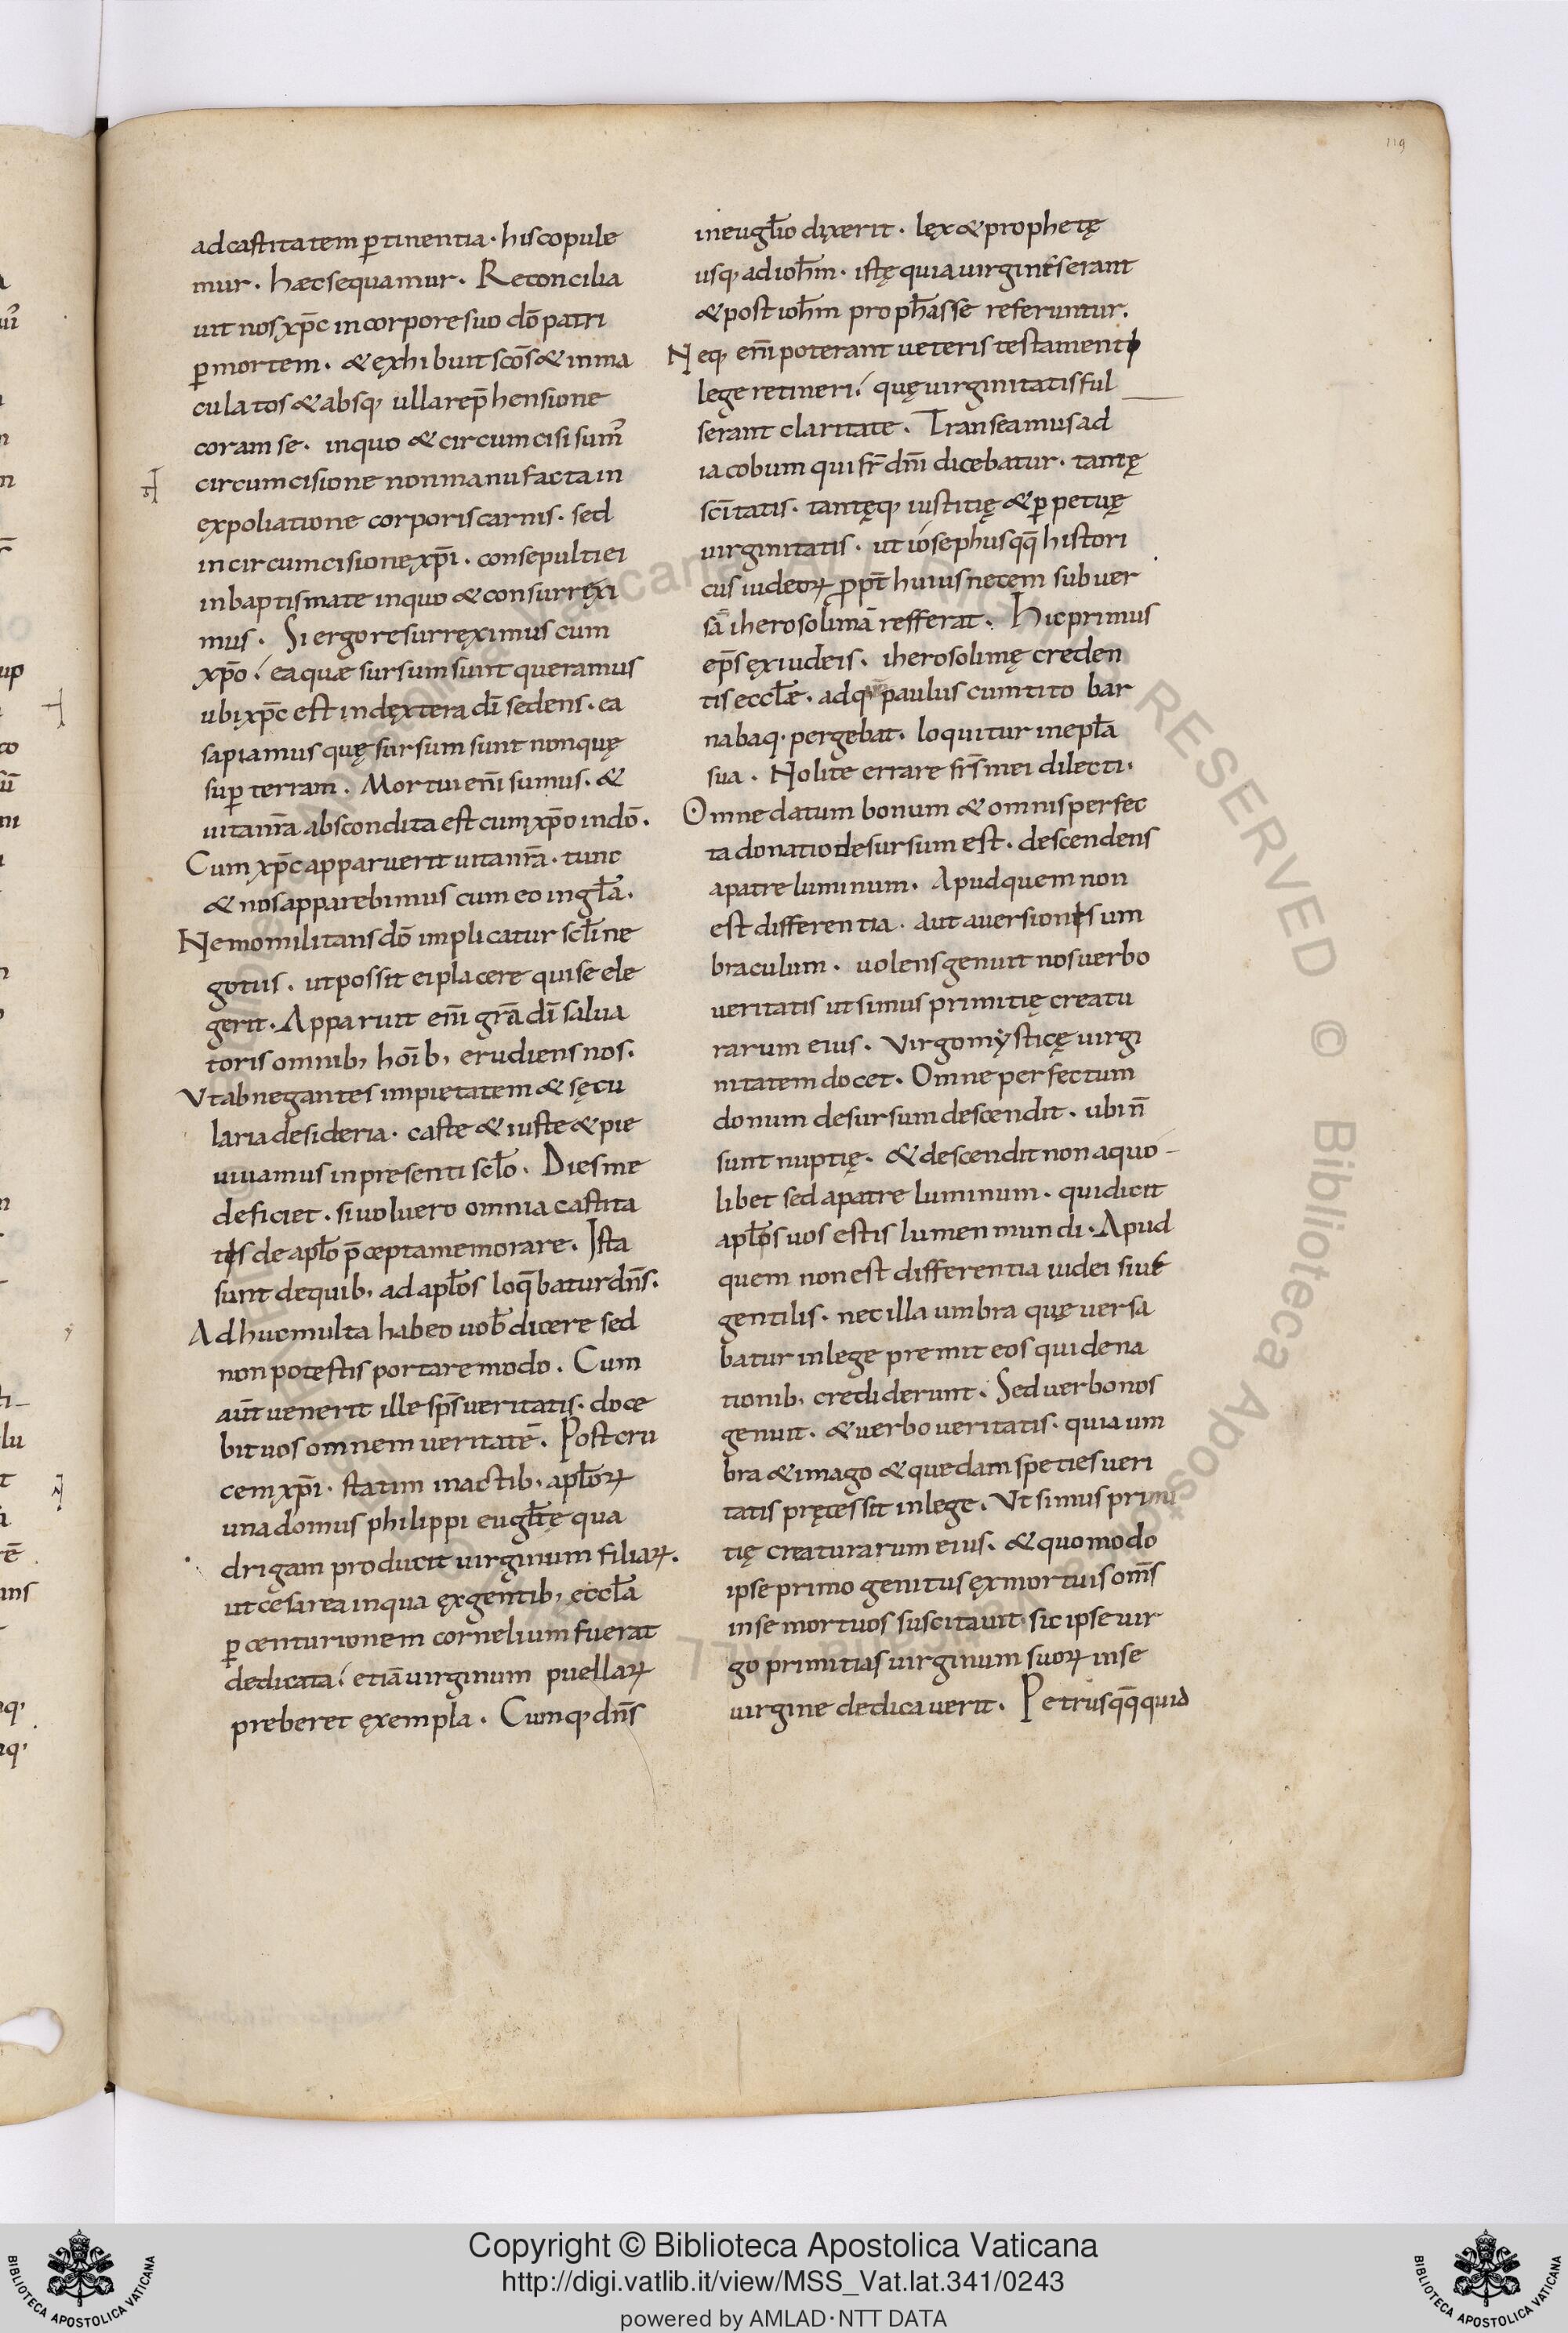 119
ad castitatem ꝑtinentia · his copule
mur · hæc sequamur · Reconcilia
uit nos xp̄c in corpore suo dō patri
ꝑ mortem · & ęxhibuit scōs & inma
culatos & absq, ulla rep̄hensione
coram se · in quo & circumcisi sum̄
circumcisione non manu facta in
expoliatione corporis carnis · sed
in circumcisione xp̄i · consepulti ei
in baptismate in quo & consurręxi
mus · Si ergo resurręximus cum
xp̄o · ea quæ sursum sunt queramus
ubi xp̄c est in dęxtera dī sedens · ea
sapiamus quę sursum sunt non quę
suꝑ terram · Mortui enī sumus · &
uita nr̄a abscondita est cum xp̄o in dō ·
Cum xp̄c apparuerit uita nr̄a · tunc
& nos apparebimus cum eo in gl̄a ·
Nemo militans dō implicatur scl̄i ne
gotiis · ut possit ei placere qui se ele
gerit · Apparuit enī grā dī salua
toris omnib, hoīb, erudiens nos ·
Vt abnegantes impietatem & sęcu
laria desideria · caste & iuste & pie
uiuamus in presenti scl̄o · Dies me
deficiet · si uoluero omnia castita
tis de apl̄o p̄cepta memorare · Ista
sunt de quib, ad apl̄os loq̄batur dn̄s ·
Adhuc multa habeo uob̄ dicere sed
non potestis portare modo · Cum
aut̄ uenerit ille sp̄s ueritatis · doce
bit uos omnem ueritatē · Post cru
cem xp̄i · statim in actib, apl̄oꝝ
una domus philippi eugl̄tę qua
drigam producit uirginum filiaꝝ ·
ut cesarea in qua ęx gentib, eccl̄a
ꝑ centurionem cornelium fuerat
dedicata · etiā uirginum puellaꝝ
preberet ęxempla · Cumq, dn̄s
in eugl̄io dixerit · lęx & prophetę
usq, ad ioh̄m · istę quia uirgines erant
& post ioh̄m proph̄asse referuntur ·
Neq, enī poterant ueteris testamenti
lege retineri · quę uirginitatis ful
serant claritate · Transeamus ad
iacobum qui fr̄ dn̄i dicebatur · tantę
scītatis · tantęq, iustitię & ꝑpetuę
uirginitatis · ut iosephus qq̄ histori
cus iudeoꝝ ꝓpt̄ huius necem subuer
sā iherosolimā refferat · Hic primus
ep̄s ęx iudeis · iherosolimę creden
tis eccl̄æ · ad q paulus cum tito bar
nabaq · pergebat · loquitur in epl̄a
sua · Nolite errare fr̄s mei dilecti ·
Omne datum bonum & omnis perfec
ta donatio desursum est · descendens
a patre luminum · Apud quem non
est differentia · aut auersionis um
braculum · uolens genuit nos uerbo
ueritatis ut simus primitię creatu
rarum eius · Virgo mysticę uirgi
nitatem docet · Omne perfectum
donum desursum descendit · ubi n̄
sunt nuptię · & descendit non a quo
libet sed a patre luminum · qui dicit
apl̄os uos estis lumen mundi · Apud
quem non est differentia iudei siue
gentilis · nec illa umbra quę uersa
batur in lege premit eos qui de na
tionib, crediderunt · Sed uerbo nos
genuit · & uerbo ueritatis · quia um
bra & imago & quedam species ueri
tatis pręcessit in lege · Vt simus primi
tię creaturarum eius · & quomodo
ipse primogenitus ęx mortuis om̄s
in se mortuos suscitauit sic ipse uir
go primitias uirginum suoꝝ in se
uirgine dedicauerit · Petrus qq̄ quid
Copyright © Biblioteca Apostolica Vaticana
http://digi.vatlib.it/view/MSS_Vat.lat.341/0243
powered by AMLAD·NTT DATA
BIBLIOTECA APOSTOLICA VATICANA
BIBLIOTECA APOSTOLICA VATICANA